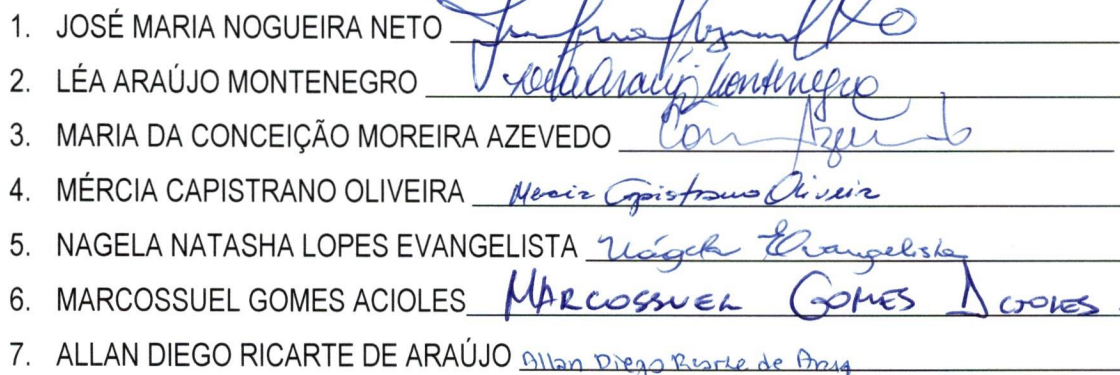 1. JOSÉ MARIA NOGUEIRA NETO
2. LÉA ARAÚJO MONTENEGRO Araújo Montenegro
3. MARIA DA CONCEIÇÃO MOREIRA AZEVEDO
4. MÉRCIA CAPISTRANO OLIVEIRA Mércia Capistrano Oliveira
5. NAGELA NATASHA LOPES EVANGELISTA Nágela Evangelista
6. MARCOSSUEL GOMES ACIOLES MARCOSSUEL GOMES ACIOLES
7. ALLAN DIEGO RICARTE DE ARAÚJO Allan Diego Ricarte de